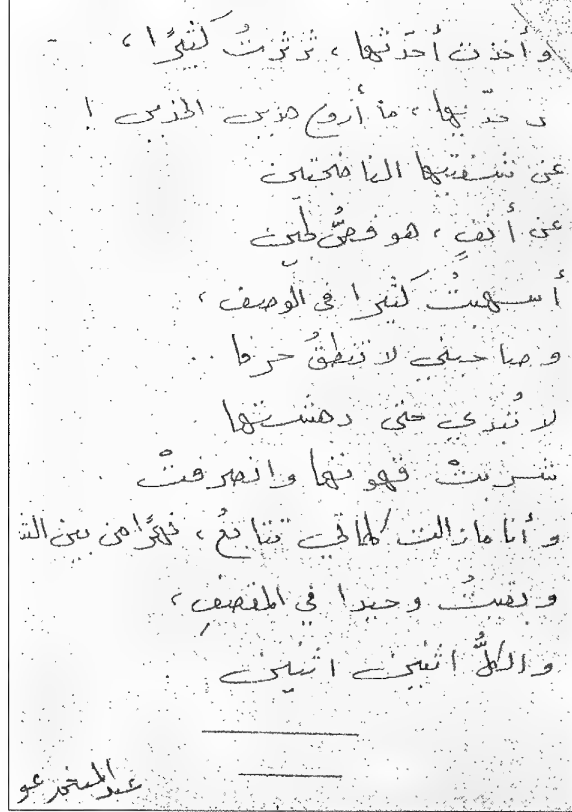 وأخذت أحدّثها، ثرثرتُ كثيرًا،
خدّيها، ما أروع هذين الخدين !
عن شفتيها الناضجتين
عن أنفٍ، هو فصُّ لجين
أسهبتُ كثيرا في الوصف،
وصاحبتي لا تنطقُ حرفا . .
لا تُبدي حتى دهشتها
شربتْ قهوتها وانصرفتْ
وأنا مازالت كلماتي تتابعُ، نهرًا من بين الش
وبقيتُ وحيدا في المقصفِ،
والكلُّ اثنين اثنين
عبد المنعم عو